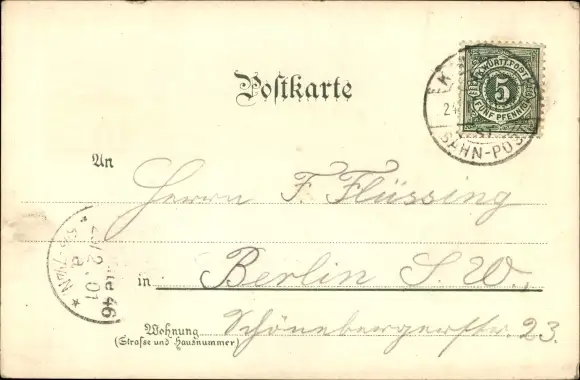 Postkarte
K. WÜRTT. POST
5
FÜNF PFENNIG
BAHN-POS
An
Herrn F. Flüssing
in Berlin S. W.
Wohnung
(Strasse und Hausnummer)
Schönebergerstr. 23.
2/2.01